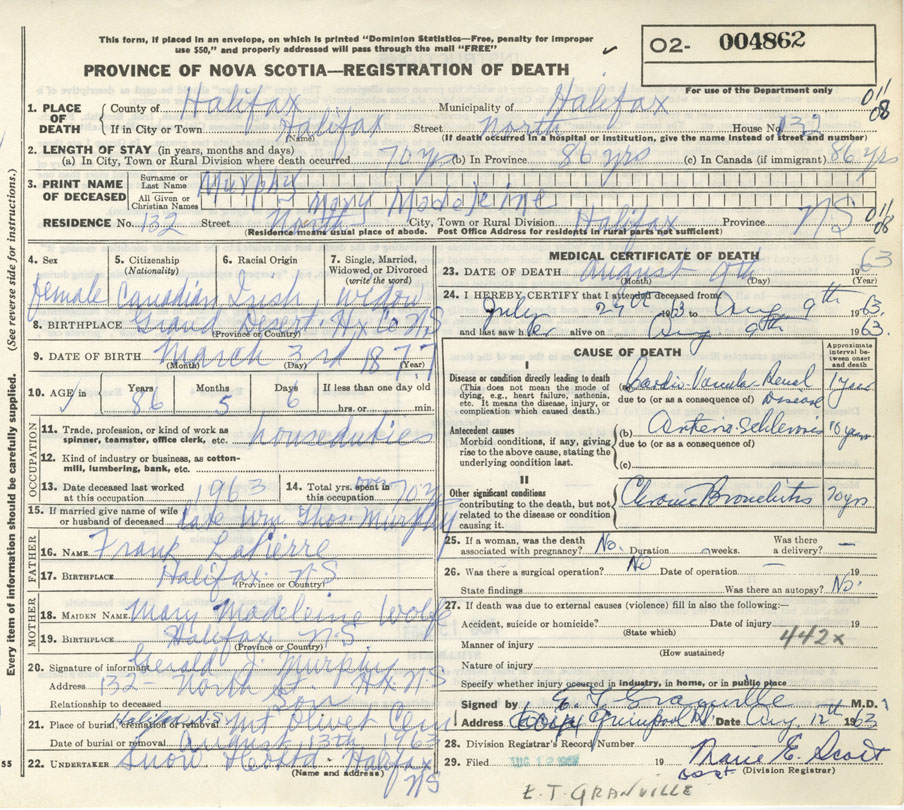 This form, if placed in an envelope, on which is printed "Dominion Statistics—Free, penalty for improper
use $50," and properly addressed will pass through the mail "FREE"
PROVINCE OF NOVA SCOTIA—REGISTRATION OF DEATH
O2- 004862
For use of the Department only
1. PLACE OF DEATH { County of Halifax Municipality of Halifax 011 08
If in City or Town Halifax Street North House No 132
(Name) (If death occurred in a hospital or institution, give the name instead of street and number)
2. LENGTH OF STAY (in years, months and days)
(a) In City, Town or Rural Division where death occurred 70 yrs (b) In Province 86 yrs (c) In Canada (if immigrant) 86 yrs
3. PRINT NAME OF DECEASED { Surname or Last Name Murphy
All Given or Christian Names Mary Madeleine
RESIDENCE No. 132 Street North City, Town or Rural Division Halifax Province NS 011 08
(Residence means usual place of abode. Post Office Address for residents in rural parts not sufficient)
(See reverse side for instructions.)
Every item of information should be carefully supplied.
4. Sex female
5. Citizenship (Nationality) Canadian
6. Racial Origin Irish
7. Single, Married, Widowed or Divorced (write the word) widow
8. BIRTHPLACE Grand Desert, Hx Co NS
(Province or Country)
9. DATE OF BIRTH March 3rd 1877
(Month) (Day) (Year)
10. AGE in Years 86 Months 5 Days 6 If less than one day old
hrs. or min.
OCCUPATION
11. Trade, profession, or kind of work as spinner, teamster, office clerk, etc. houseduties
12. Kind of industry or business, as cotton-mill, lumbering, bank, etc.
13. Date deceased last worked at this occupation 1963
14. Total yrs. spent in this occupation 70 yrs
15. If married give name of wife or husband of deceased late Wm Thos. Murphy
FATHER
16. NAME Frank LaPierre
17. BIRTHPLACE Halifax NS
(Province or Country)
MOTHER
18. MAIDEN NAME Mary Madeleine Wolfe
19. BIRTHPLACE Halifax NS
(Province or Country)
20. Signature of informant Gerald J. Murphy
Address 132 - North St. Hx. NS
Relationship to deceased son
21. Place of burial, cremation or removal Halifax NS Mt Olivet Cem
Date of burial or removal August 13th 1963
22. UNDERTAKER Snow Halifax NS
(Name and address)
55
MEDICAL CERTIFICATE OF DEATH
23. DATE OF DEATH August 9th 1963
(Month) (Day) (Year)
24. I HEREBY CERTIFY that I attended deceased from
July 27th 1963 to Aug 9th 1963.
and last saw her alive on Aug 9th 1963.
CAUSE OF DEATH
Approximate interval between onset and death
I
Disease or condition directly leading to death
(This does not mean the mode of dying, e.g., heart failure, asthenia, etc. It means the disease, injury, or complication which caused death.)
(a) Cardio-Vascular Renal Disease 1 year
due to (or as a consequence of)
Antecedent causes
Morbid conditions, if any, giving rise to the above cause, stating the underlying condition last.
(b) Arterio-Schlerosis 10 years
due to (or as a consequence of)
(c)
II
Other significant conditions
contributing to the death, but not related to the disease or condition causing it.
Chronic Bronchitis 20 yrs
25. If a woman, was the death associated with pregnancy? No. Duration weeks. Was there a delivery? —
26. Was there a surgical operation? No Date of operation — 19
State findings Was there an autopsy? No.
27. If death was due to external causes (violence) fill in also the following:—
Accident, suicide or homicide? Date of injury 19
(State which)
442x
Manner of injury
(How sustained)
Nature of injury
Specify whether injury occurred in industry, in home, or in public place
Signed by E. T. Granville M.D.
Address Quinpool Rd Date Aug. 12th 1963
28. Division Registrar's Record Number
29. Filed AUG 12 19 Marie E. Scott
(Division Registrar)
E.T. GRANVILLE